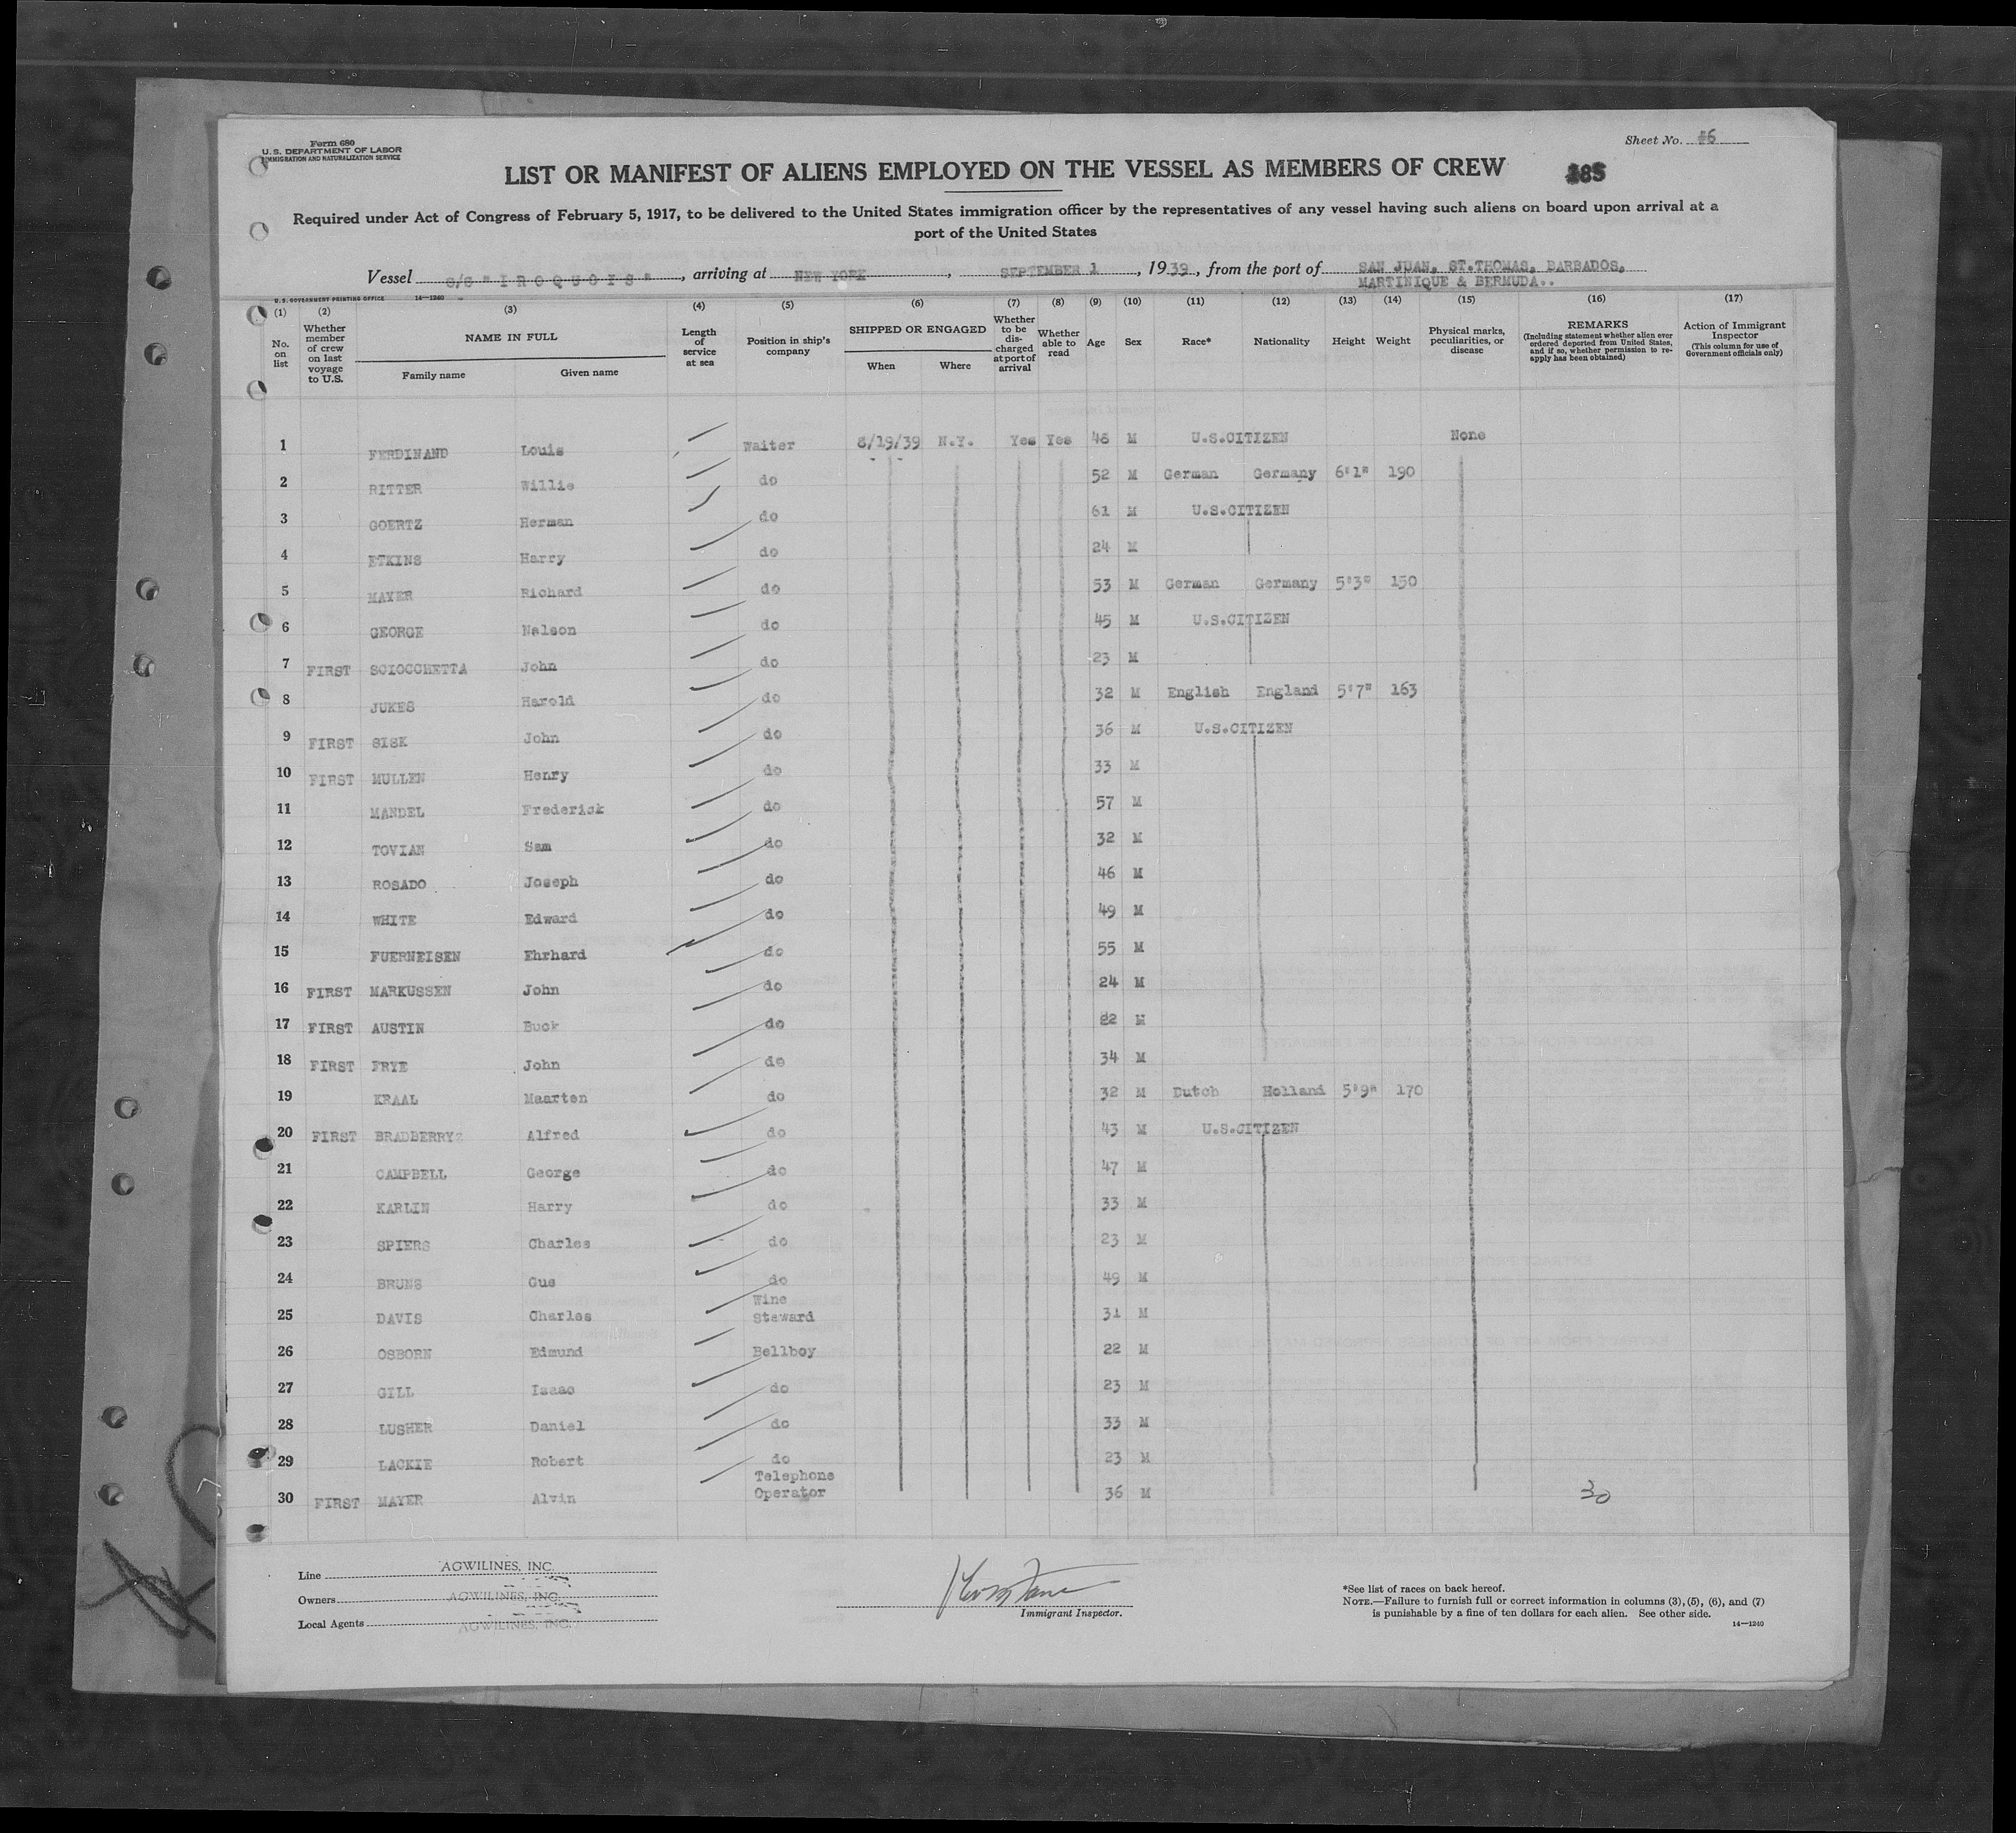 Form 680
U. S. DEPARTMENT OF LABOR
IMMIGRATION AND NATURALIZATION SERVICE
Sheet No. #6
LIST OR MANIFEST OF ALIENS EMPLOYED ON THE VESSEL AS MEMBERS OF CREW
185
Required under Act of Congress of February 5, 1917, to be delivered to the United States immigration officer by the representatives of any vessel having such aliens on board upon arrival at a
port of the United States
Vessel S/S " I R O Q U O I S ", arriving at NEW YORK, SEPTEMBER 1, 1939, from the port of SAN JUAN, ST.THOMAS, BARBADOS,
MARTINIQUE & BERMUDA..
U. S. GOVERNMENT PRINTING OFFICE 14—1240
(1) (2) (3) (4) (5) (6) (7) (8) (9) (10) (11) (12) (13) (14) (15) (16) (17)
No. on list
Whether member of crew on last voyage to U.S.
NAME IN FULL
Family name Given name
Length of service at sea
Position in ship's company
SHIPPED OR ENGAGED
When Where
Whether to be discharged at port of arrival
Whether able to read
Age
Sex
Race*
Nationality
Height
Weight
Physical marks, peculiarities, or disease
REMARKS
(Including statement whether alien ever ordered deported from United States, and if so, whether permission to reapply has been obtained)
Action of Immigrant Inspector
(This column for use of Government officials only)
1 FERDINAND Louis Waiter 8/19/39 N.Y. Yes Yes 46 M U.S.CITIZEN None
2 RITTER Willie do 52 M German Germany 6'1" 190
3 GOERTZ Herman do 61 M U.S.CITIZEN
4 ETKINS Harry do 24 M
5 MAYER Richard do 53 M German Germany 5'3" 150
6 GEORGE Nelson do 45 M U.S.CITIZEN
7 FIRST SCIOCCHETTA John do 23 M
8 JUKES Harold do 32 M English England 5'7" 163
9 FIRST SISK John do 36 M U.S.CITIZEN
10 FIRST MULLEN Henry do 33 M
11 MANDEL Frederick do 57 M
12 TOVIAN Sam do 32 M
13 ROSADO Joseph do 46 M
14 WHITE Edward do 49 M
15 FUERNEISEN Ehrhard do 55 M
16 FIRST MARKUSSEN John do 24 M
17 FIRST AUSTIN Buck do 22 M
18 FIRST FRYE John do 34 M
19 KRAAL Maarten do 32 M Dutch Holland 5'9" 170
20 FIRST BRADBERRY Alfred do 43 M U.S.CITIZEN
21 CAMPBELL George do 47 M
22 KARLIN Harry do 33 M
23 SPIERS Charles do 23 M
24 BRUNS Gus do 49 M
25 DAVIS Charles Wine Steward 31 M
26 OSBORN Edmund Bellboy 22 M
27 GILL Isaac do 23 M
28 LUSHER Daniel do 33 M
29 LACKIE Robert do 23 M
30 FIRST MAYER Alvin Telephone Operator 36 M
30
Line AGWILINES, INC.
Owners AGWILINES, INC.
Local Agents AGWILINES, INC.
Immigrant Inspector.
*See list of races on back hereof.
NOTE.—Failure to furnish full or correct information in columns (3), (5), (6), and (7)
is punishable by a fine of ten dollars for each alien. See other side.
14—1240